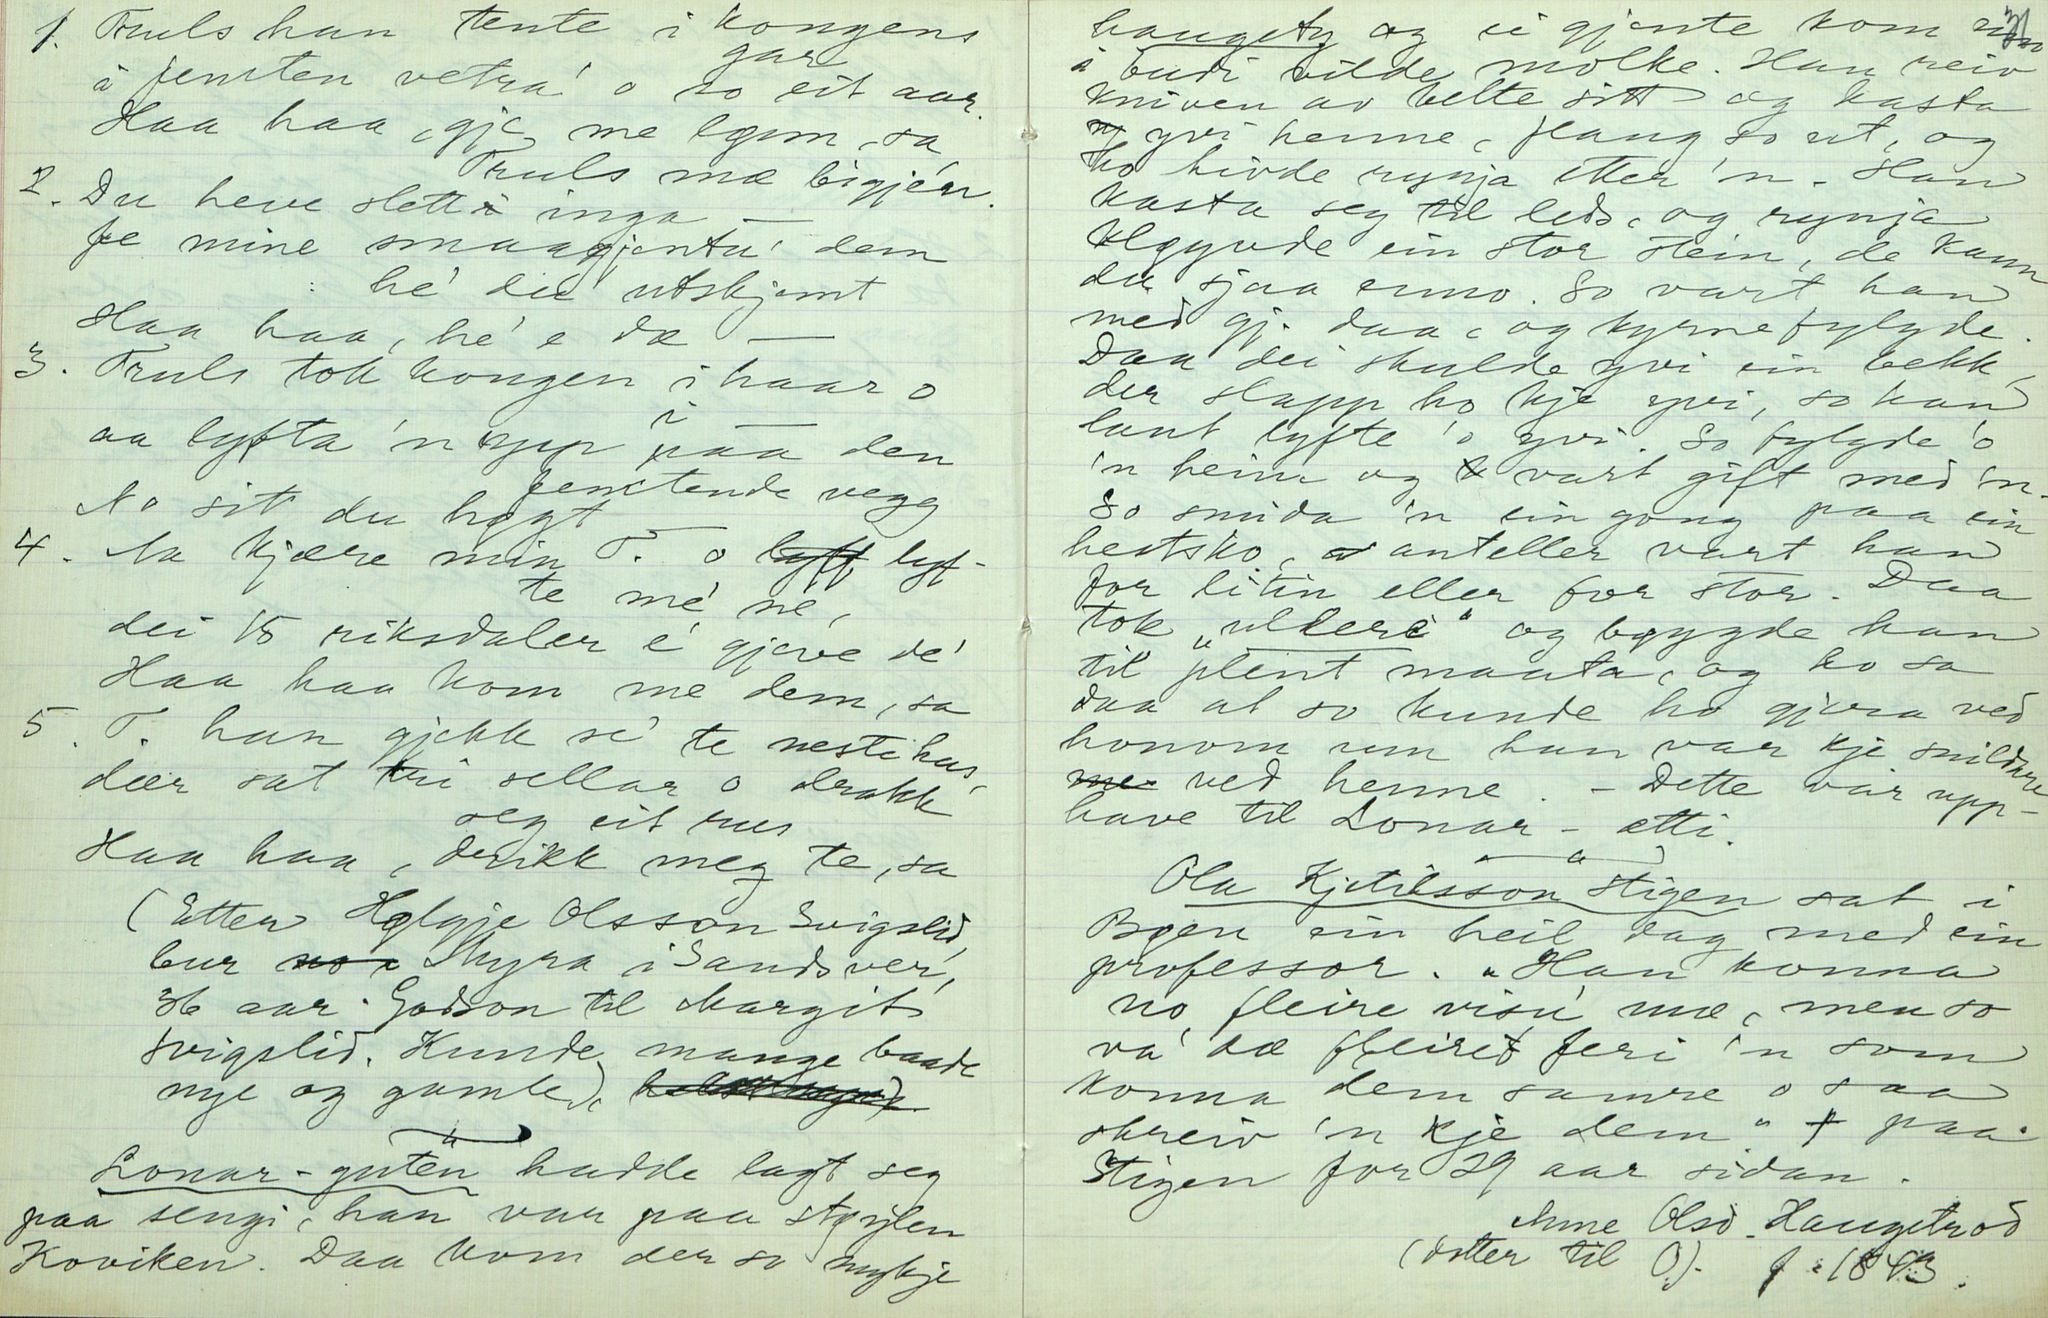 1. Truls han tente i kongens
gar
i femten vetra' o so eit aar.
Haa haa, gje me løm, sa
Truls mæ bigjær.
2. Du heve slett inga —
fe mine smaagjentu' dem
he' du utskjemt
Haa haa, he' e dæ —
3. Truls tok kongen i haar o
i —
aa lyfta 'n upp paa den
femtende vegg
No sit du høgt —
4. Aa kjære min T. o lyf-
te me' ne,
dei 15 riksdaler e' gjeve de'
Haa haa kom me dem, sa
5. T. han gjekk se' te neste hus,
dær sat tri sellar o drakk
seg eit rus
Haa haa, drikk meg te, sa
(Etter Hølgje Olsson Svigslid,
bur Skyra i Sandsver,
36 aar. Godson til Margit
Svigslid. Kunde mange baade
nye og gamle),
Lonar-guten hadde lagt seg
paa sengi, han var paa støylen
Koviken. Daa kom der so mykje
haugety og ei gjente kom inn
i budi vilde molke. Han reiv
kniven av belte sitt og kasta
yvi henne, flaug so ut, og
ho hivde rynja etter 'n. Han
kasta seg til leds, og rynja
kløyvde ein stor stein, de kann
du sjaa enno. So vart han
med gj. daa, og kyrne fylgde.
Daa dei skulde yvi ein bekk,
der slapp ho kje yvi, so han
laut lyfte 'o yvi. So fylgde 'o
'n heim og vart gift med 'n.
So smida 'n ein gong paa ein
hestsko, anteller vart han
for litin eller for stor. Daa
tok "ulderi" og bøygde han
til plent maata, og ho sa
daa at so kunde ho gjera ved
honom um han var kje snildare
ved henne. - Dette var upp-
have til Lonar-ætti.
Ola Kjetilsson Stigen sat i
Bøen ein heil dag med ein
professor. "Han konna
no fleire visu' mæ, men so
va' dæ fleire feri 'n som
konna dem samre o saa
skreiv 'n kje dem." † paa
Stigen for 29 aar sidan.
Anne Olsd. Haugetrod
(dotter til O). f. 1843.